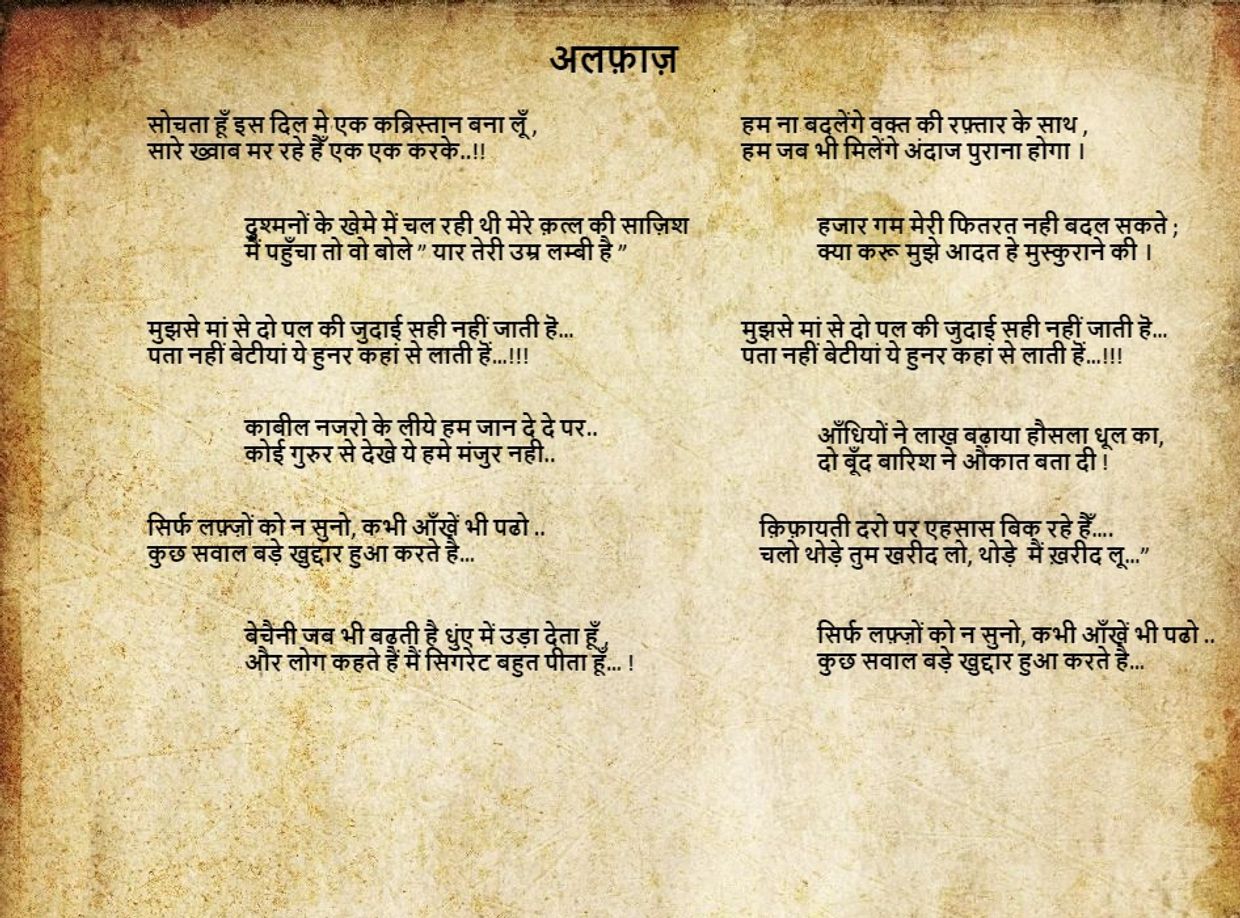 अलफ़ाज़
सोचता हूँ इस दिल मे एक कब्रिस्तान बना लूँ ,
सारे ख्वाब मर रहे हैँ एक एक करके..!!
दुश्मनों के खेमे में चल रही थी मेरे क़त्ल की साज़िश
मैं पहुँचा तो वो बोले ” यार तेरी उम्र लम्बी है ”
मुझसे मां से दो पल की जुदाई सही नहीं जाती हॆ...
पता नहीं बेटीयां ये हुनर कहां से लाती हॆं...!!!
काबील नजरो के लीये हम जान दे दे पर..
कोई गुरुर से देखे ये हमे मंजुर नही..
सिर्फ लफ़्ज़ों को न सुनो, कभी आँखें भी पढो ..
कुछ सवाल बड़े खुद्दार हुआ करते है...
बेचैनी जब भी बढ़ती है धुंए में उड़ा देता हूँ ,
और लोग कहते हैं मैं सिगरेट बहुत पीता हूँ... !
हम ना बदलेंगे वक्त की रफ़्तार के साथ ,
हम जब भी मिलेंगे अंदाज पुराना होगा ।
हजार गम मेरी फितरत नही बदल सकते ;
क्या करू मुझे आदत हे मुस्कुराने की ।
मुझसे मां से दो पल की जुदाई सही नहीं जाती हॆ...
पता नहीं बेटीयां ये हुनर कहां से लाती हॆं...!!!
आँधियों ने लाख बढ़ाया हौसला धूल का,
दो बूँद बारिश ने औकात बता दी !
क़िफ़ायती दरो पर एहसास बिक रहे हैँ....
चलो थोड़े तुम खरीद लो, थोड़े मैं ख़रीद लू...”
सिर्फ लफ़्ज़ों को न सुनो, कभी आँखें भी पढो ..
कुछ सवाल बड़े खुद्दार हुआ करते है...